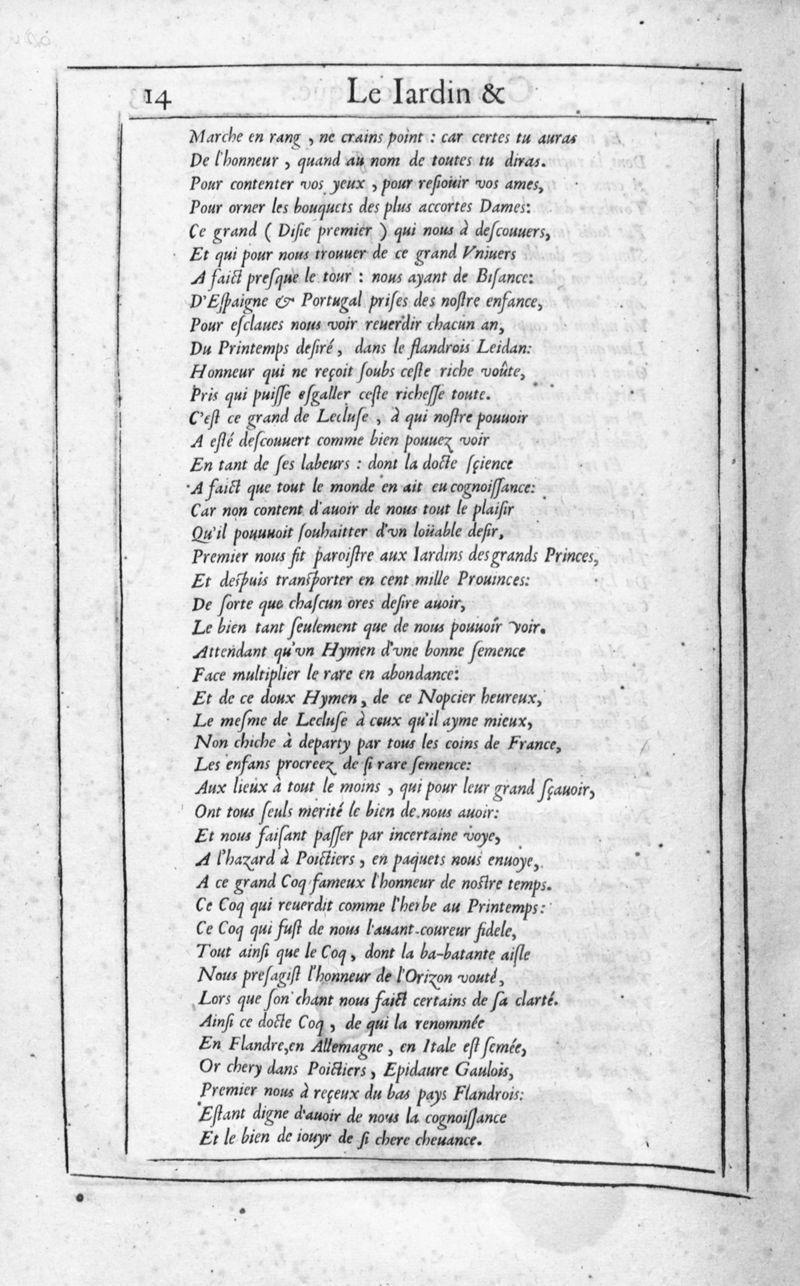 14 Le Iardin &
Marche en rang , ne crains point : car certes tu auras
De l'honneur , quand au nom de toutes tu diras.
Pour contenter vos yeux , pour resiouir vos ames,
Pour orner les bouquets des plus accortes Dames:
Ce grand ( Disie premier ) qui nous à descouuers,
Et qui pour nous trouuer de ce grand Vniuers
A faict presque le tour : nous ayant de Bisance:
D'Espaigne & Portugal prises des nostre enfance,
Pour esclaues nous voir reuerdir chacun an,
Du Printemps desiré, dans le flandrois Leidan:
Honneur qui ne reçoit soubs ceste riche voûte,
Pris qui puisse esgaller ceste richesse toute.
C'est ce grand de Lecluse , à qui nostre pouuoir
A esté descouuert comme bien pouuez voir
En tant de ses labeurs : dont la docte sçience
A faict que tout le monde en ait eu cognoissance:
Car non content d'auoir de nous tout le plaisir
Qu'il pouuuoit souhaitter d'vn loüable desir,
Premier nous fit paroistre aux Iardins des grands Princes,
Et despuis transporter en cent mille Prouinces:
De sorte que chascun ores desire auoir,
Le bien tant seulement que de nous pouuoir voir.
Attendant qu'vn Hymen d'vne bonne semence
Face multiplier le rare en abondance:
Et de ce doux Hymen, de ce Nopcier heureux,
Le mesme de Lecluse à ceux qu'il ayme mieux,
Non chiche à departy par tous les coins de France,
Les enfans procreez de si rare semence:
Aux lieux à tout le moins , qui pour leur grand sçauoir,
Ont tous seuls merité le bien de nous auoir:
Et nous faisant passer par incertaine voye,
A l'hazard à Poictiers , en paquets nous enuoye,
A ce grand Coq fameux l'honneur de nostre temps.
Ce Coq qui reuerdit comme l'herbe au Printemps:
Ce Coq qui fust de nous l'auant-coureur fidele,
Tout ainsi que le Coq , dont la ba-batante aisle
Nous presagist l'honneur de l'Orizon vouté,
Lors que son chant nous faict certains de sa clarté.
Ainsi ce docte Coq , de qui la renommée
En Flandre,en Allemagne , en Itale est semée,
Or chery dans Poictiers , Epidaure Gaulois,
Premier nous à reçeux du bas pays Flandrois:
Estant digne d'auoir de nous la cognoissance
Et le bien de iouyr de si chere cheuance.